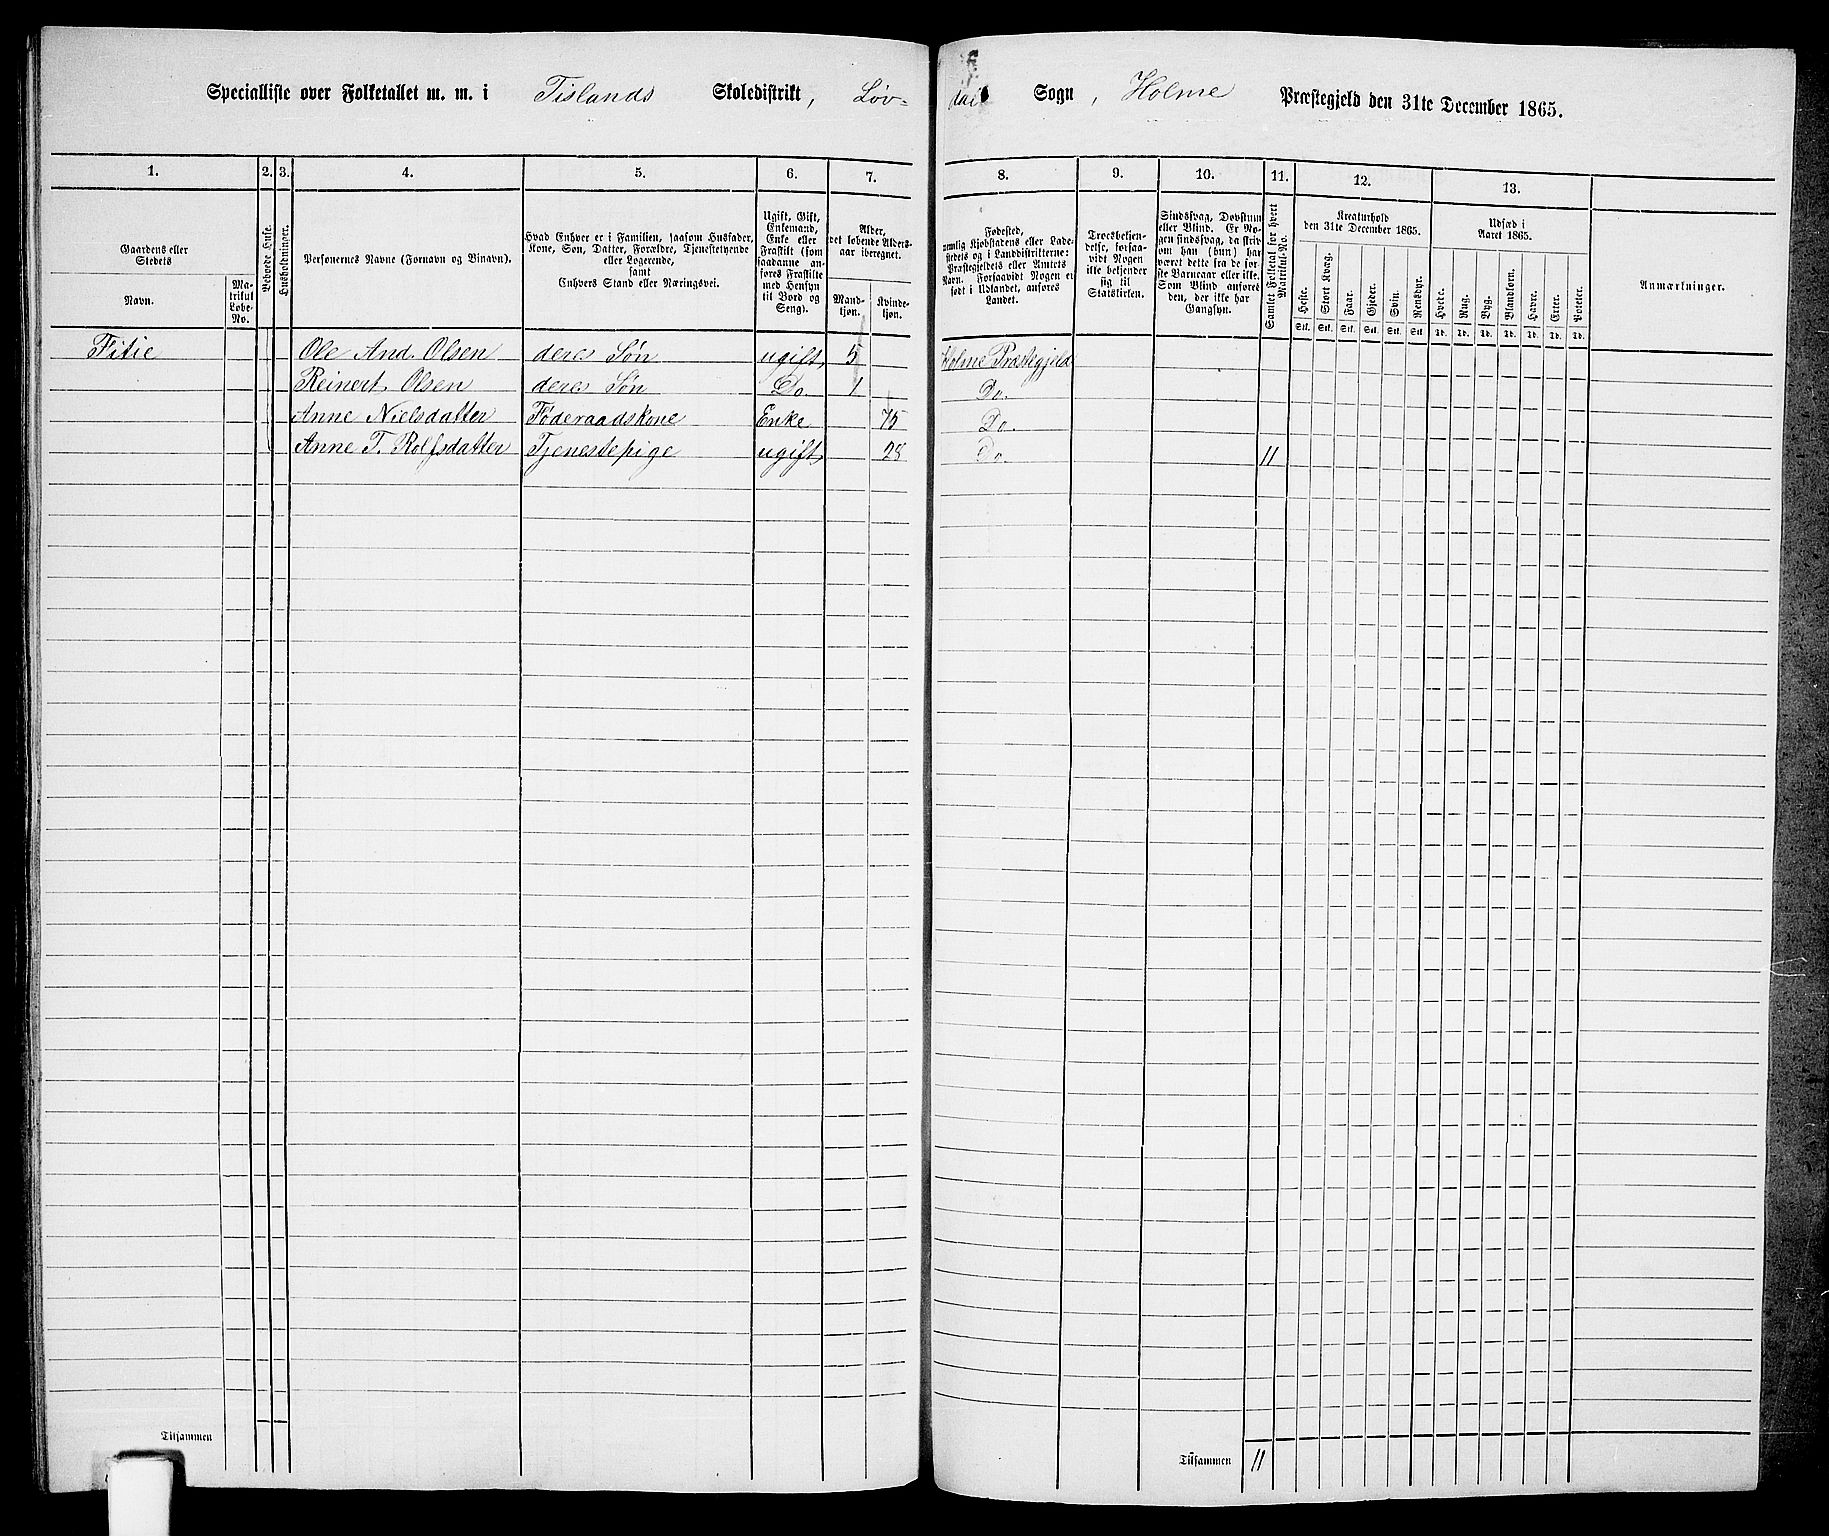 Specialliste over Folketallet m. m. i Tislands Skoledistrikt, Løv-
dals Sogn, Holme Præstegjeld den 31te December 1865.
1. 2. 3. 4. 5. 6. 7. 8. 9. 10. 11. 12. 13.
Gaardens eller Stedets
Navn.
Matrikul Løbe-No.
Beboede Huse.
Husholdninger.
Personernes Navne (Fornavn og Binavn).
Hvad Enhver er i Familien, saasom Husfader,
Kone, Søn, Datter, Forældre, Tjenestetyende
eller Logerende,
samt
Enhvers Stand eller Næringsvei.
Ugift, Gift,
Enkemand,
Enke eller
Fraskilt (som
saadanne an-
føres Fraskilte
med Hensyn
til Bord og
Seng).
Alder,
det løbende Alders-
aar iberegnet.
Mand-
kjøn.
Kvinde-
kjøn.
Fødested,
nemlig Kjøbstadens eller Lade-
stedets og i Landdistrikterne:
Præstegjeldets eller Amtets
Navn. Forsaavidt Nogen er
født i Udlandet, anføres
Landet.
Troesbekjen-
delse, forsaa-
vidt Nogen
ikke bekjender
sig til
Statskirken.
Sindssvag, Døvstum
eller Blind. Er No-
gen sindssvag, da skriv
om han (hun) har
været dette fra de før-
ste Barneaar eller ikke.
Som Blind anføres
den, der ikke har
Gangsyn.
Samlet Folketal for hvert
Matrikul-No.
Kreaturhold
den 31te December 1865.
Heste. Stort Kvæg. Faar. Gjeder. Svin. Rensdyr.
Stk. Stk. Stk. Stk. Stk. Stk.
Udsæd i
Aaret 1865.
Hvede. Rug. Byg. Blandkorn. Havre. Erter. Poteter.
Td. Td. Td. Td. Td. Td. Td.
Anmærkninger.
Fitie Ole And. Olsen deres Søn ugift 5 Holme Præstegjeld
Reinert Olsen deres Søn Do. 1 Do.
Anne Nielsdatter Føderaadskone Enke 75 Do.
Anne T. Rolfsdatter Tjenestepige ugift 28 Do. 11
Tilsammen
Tilsammen 11